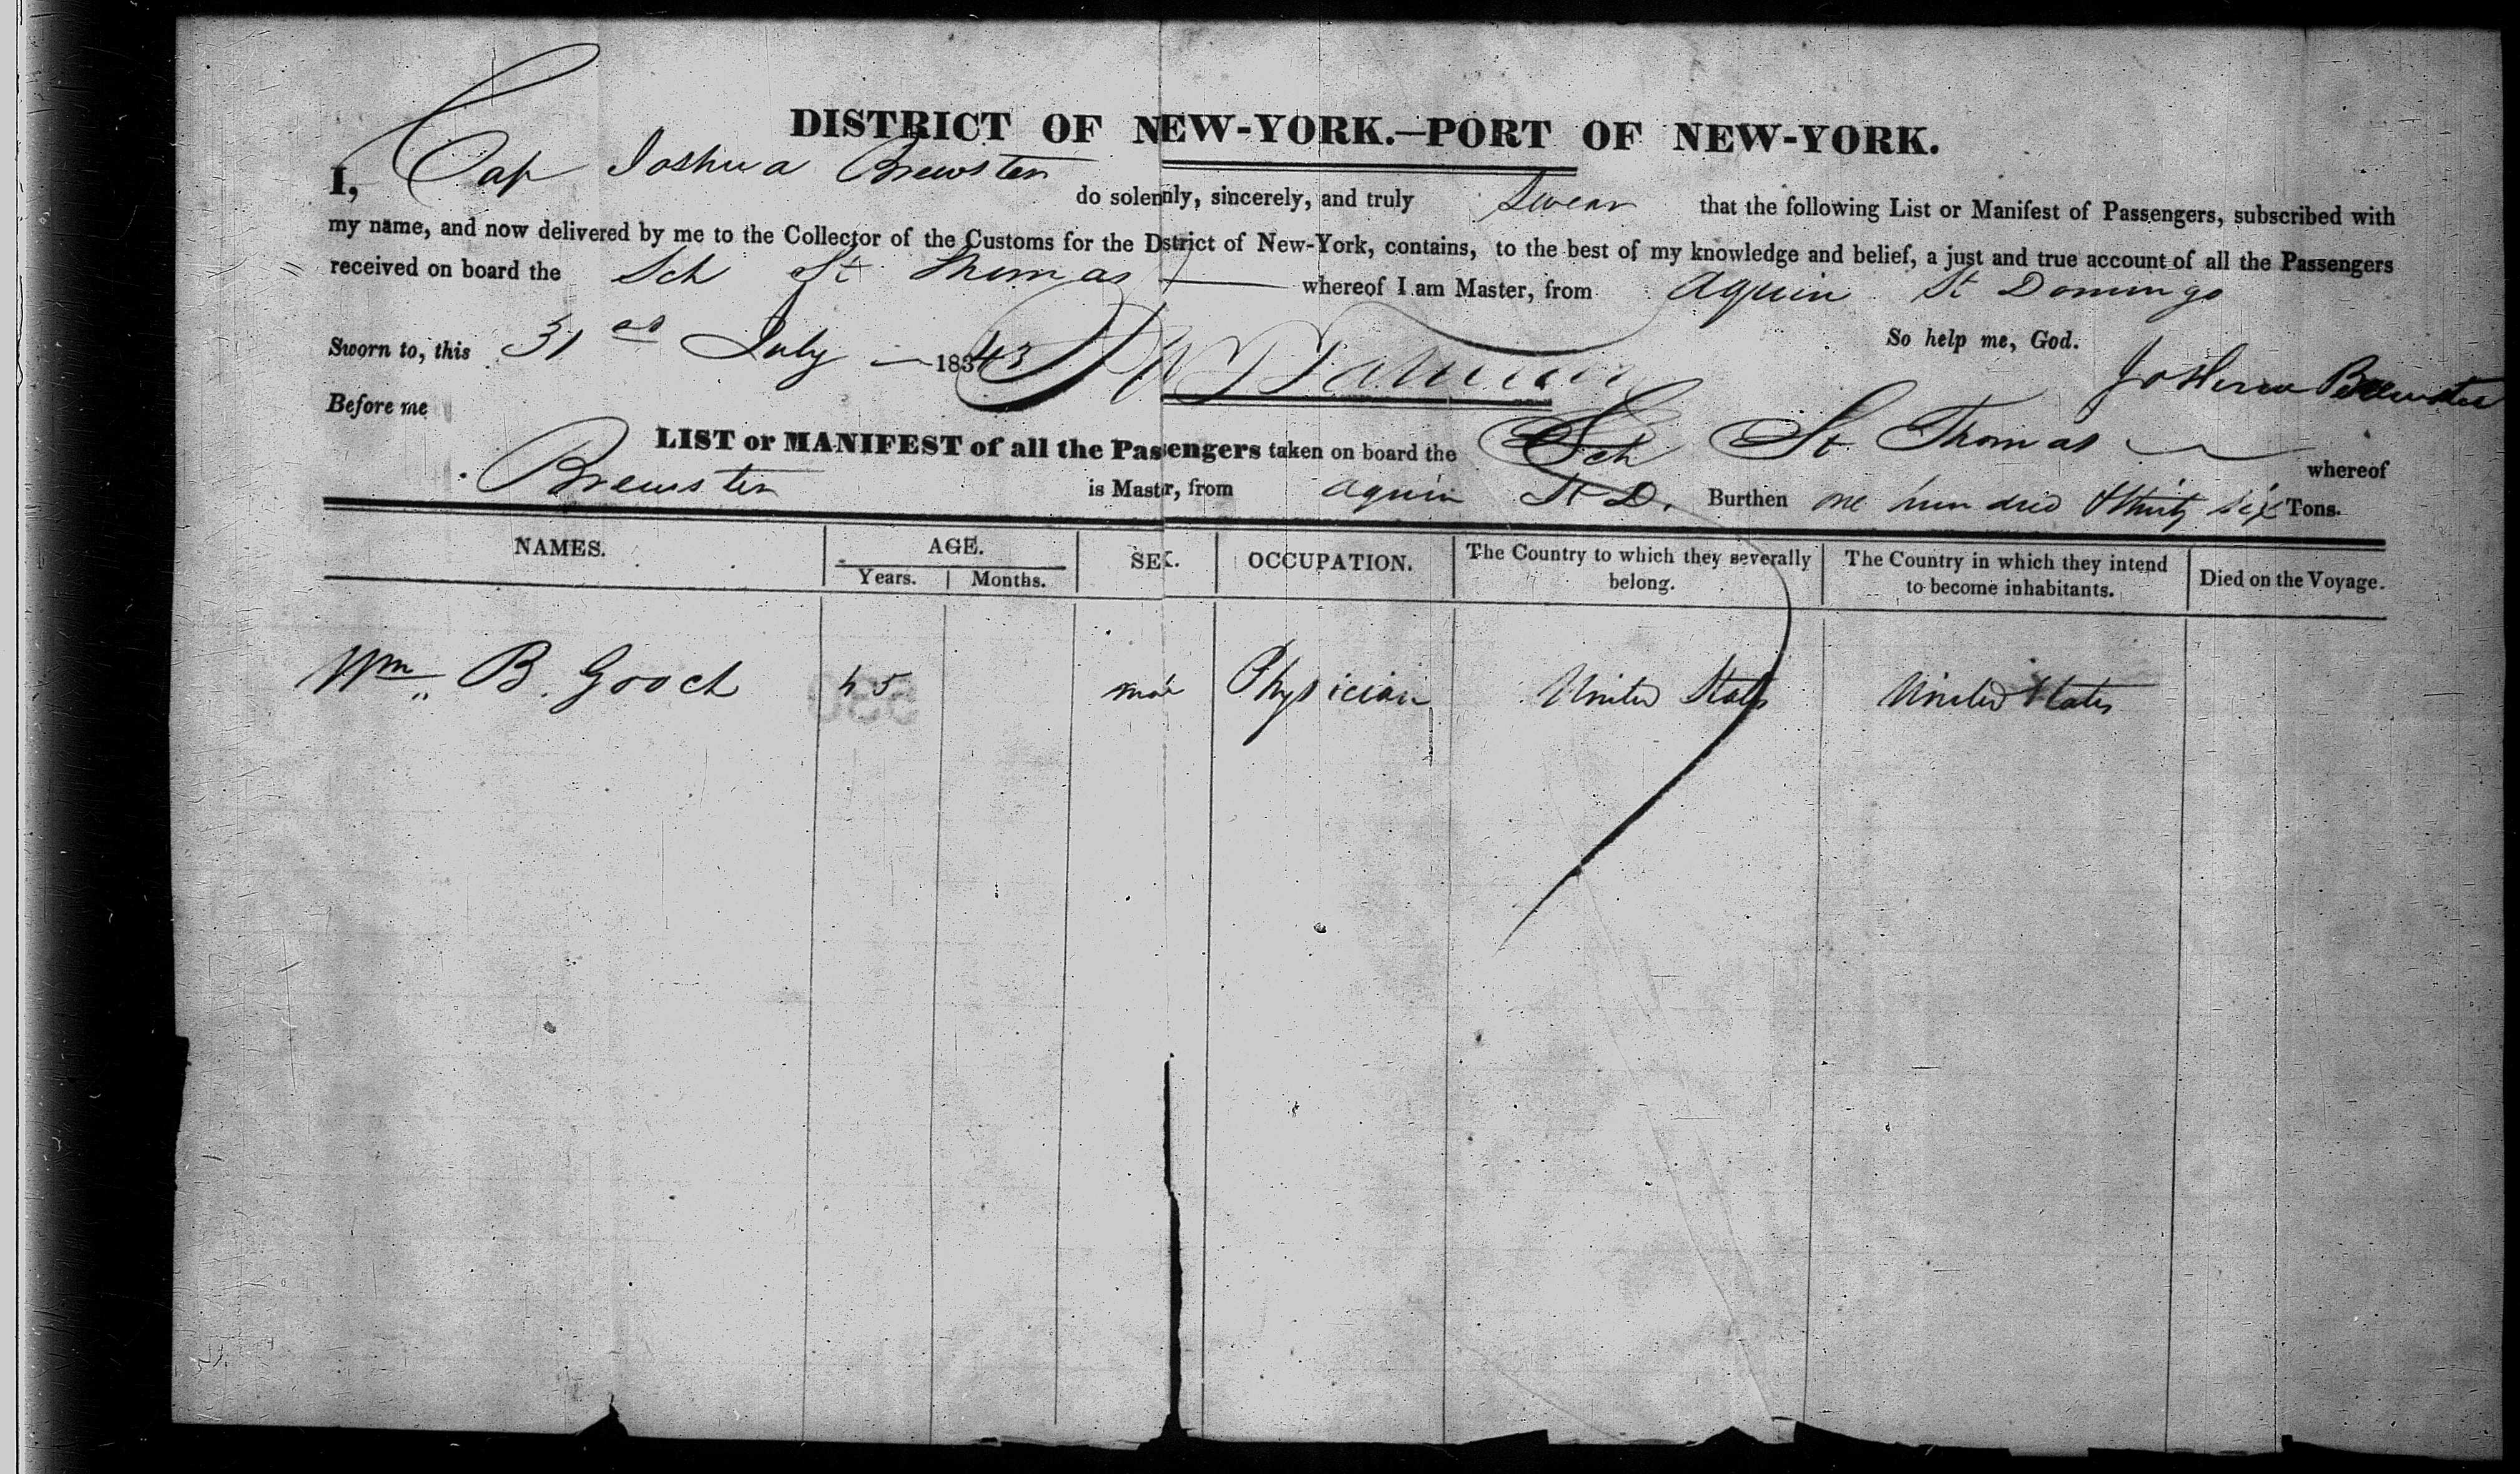 DISTRICT OF NEW-YORK.—PORT OF NEW-YORK.
I, Cap Joshua Brewster do solemnly, sincerely, and truly Swear that the following List or Manifest of Passengers, subscribed with
my name, and now delivered by me to the Collector of the Customs for the Dstrict of New-York, contains, to the best of my knowledge and belief, a just and true account of all the Passengers
received on board the Sch St Thomas whereof I am Master, from Aquin St Domingo
So help me, God.
Sworn to, this 31st July — 1843
Joshua Brewster
Before me
LIST or MANIFEST of all the Passengers taken on board the Sch St Thomas whereof
Brewster is Mastr, from Aquin St D. Burthen one hundred & thirty six Tons.
NAMES. AGE. SEX. OCCUPATION. The Country to which they severally belong. The Country in which they intend to become inhabitants. Died on the Voyage.
Years. Months.
Wm B. Gooch 45 male Physician United States United States